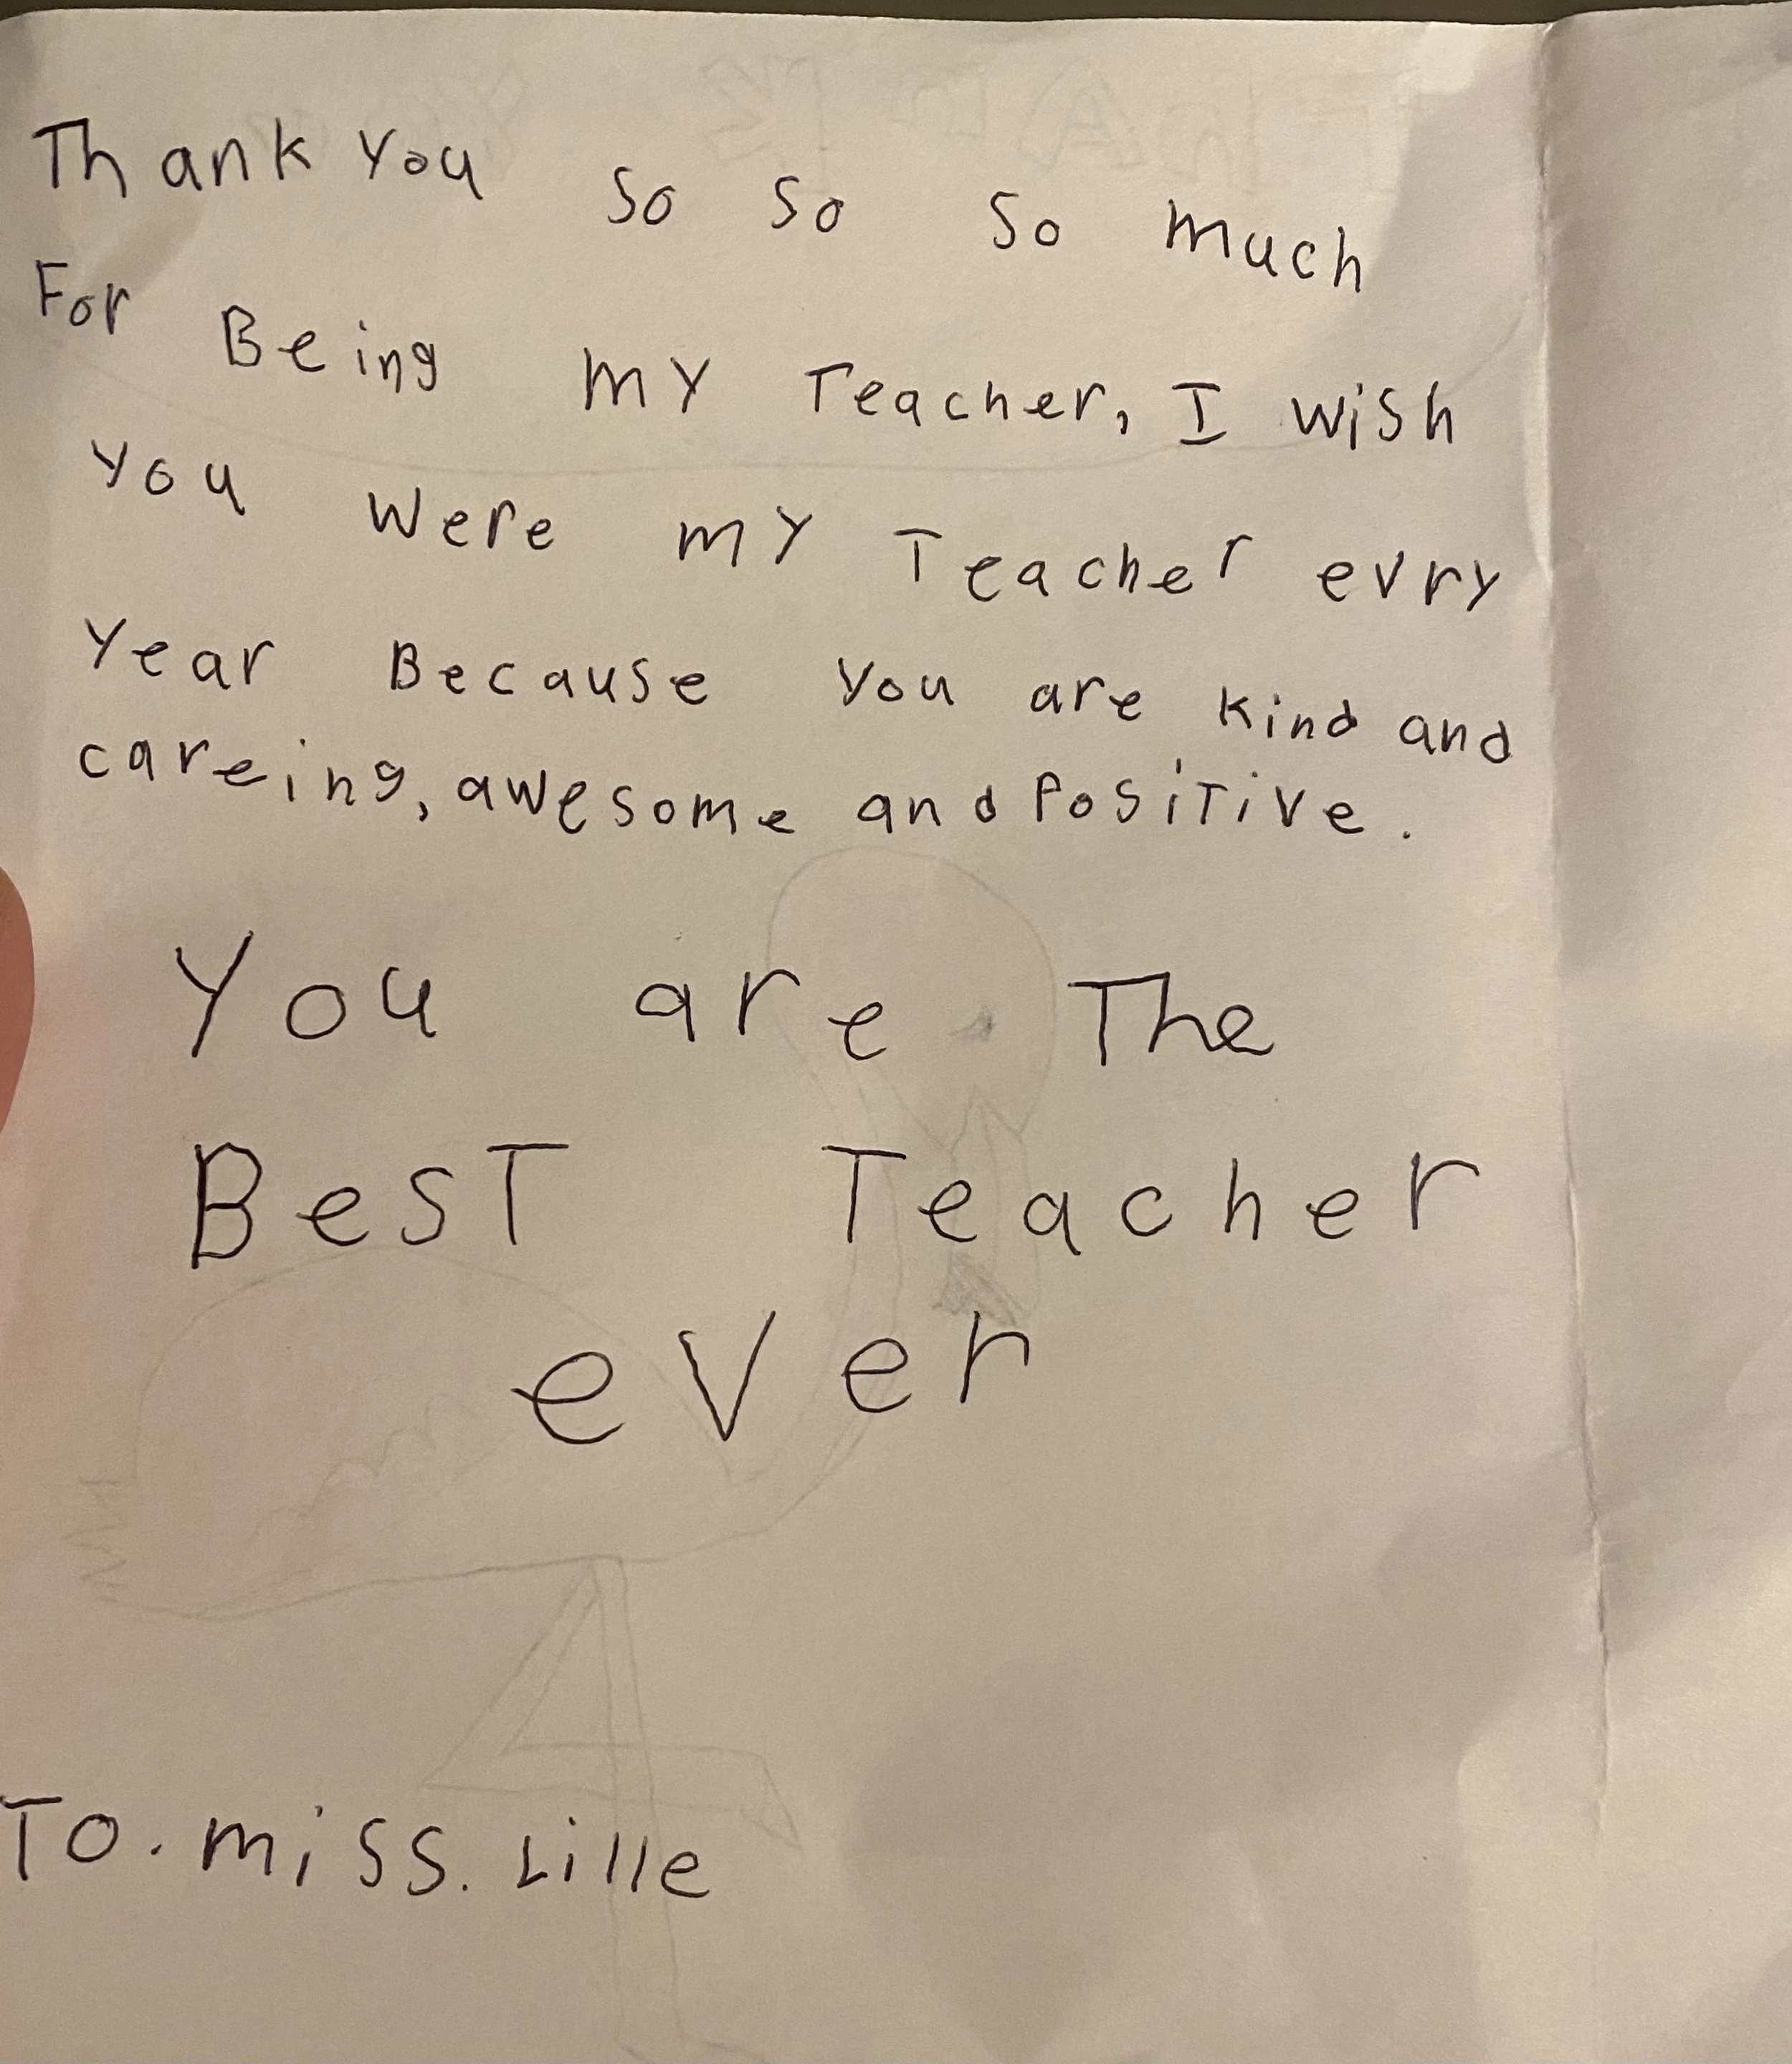 Thank You so so so much
For Being my Teacher, I wish
you were my Teacher evry
Year Because you are kind and
careing, awesome and Positive.
You are The
BesT Teacher
ever
To. miss. Lille